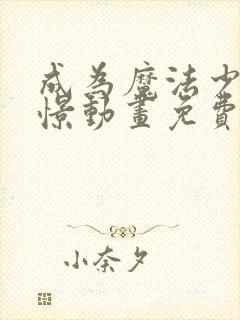 成為魔法少
憬動畫免費
小奈夕